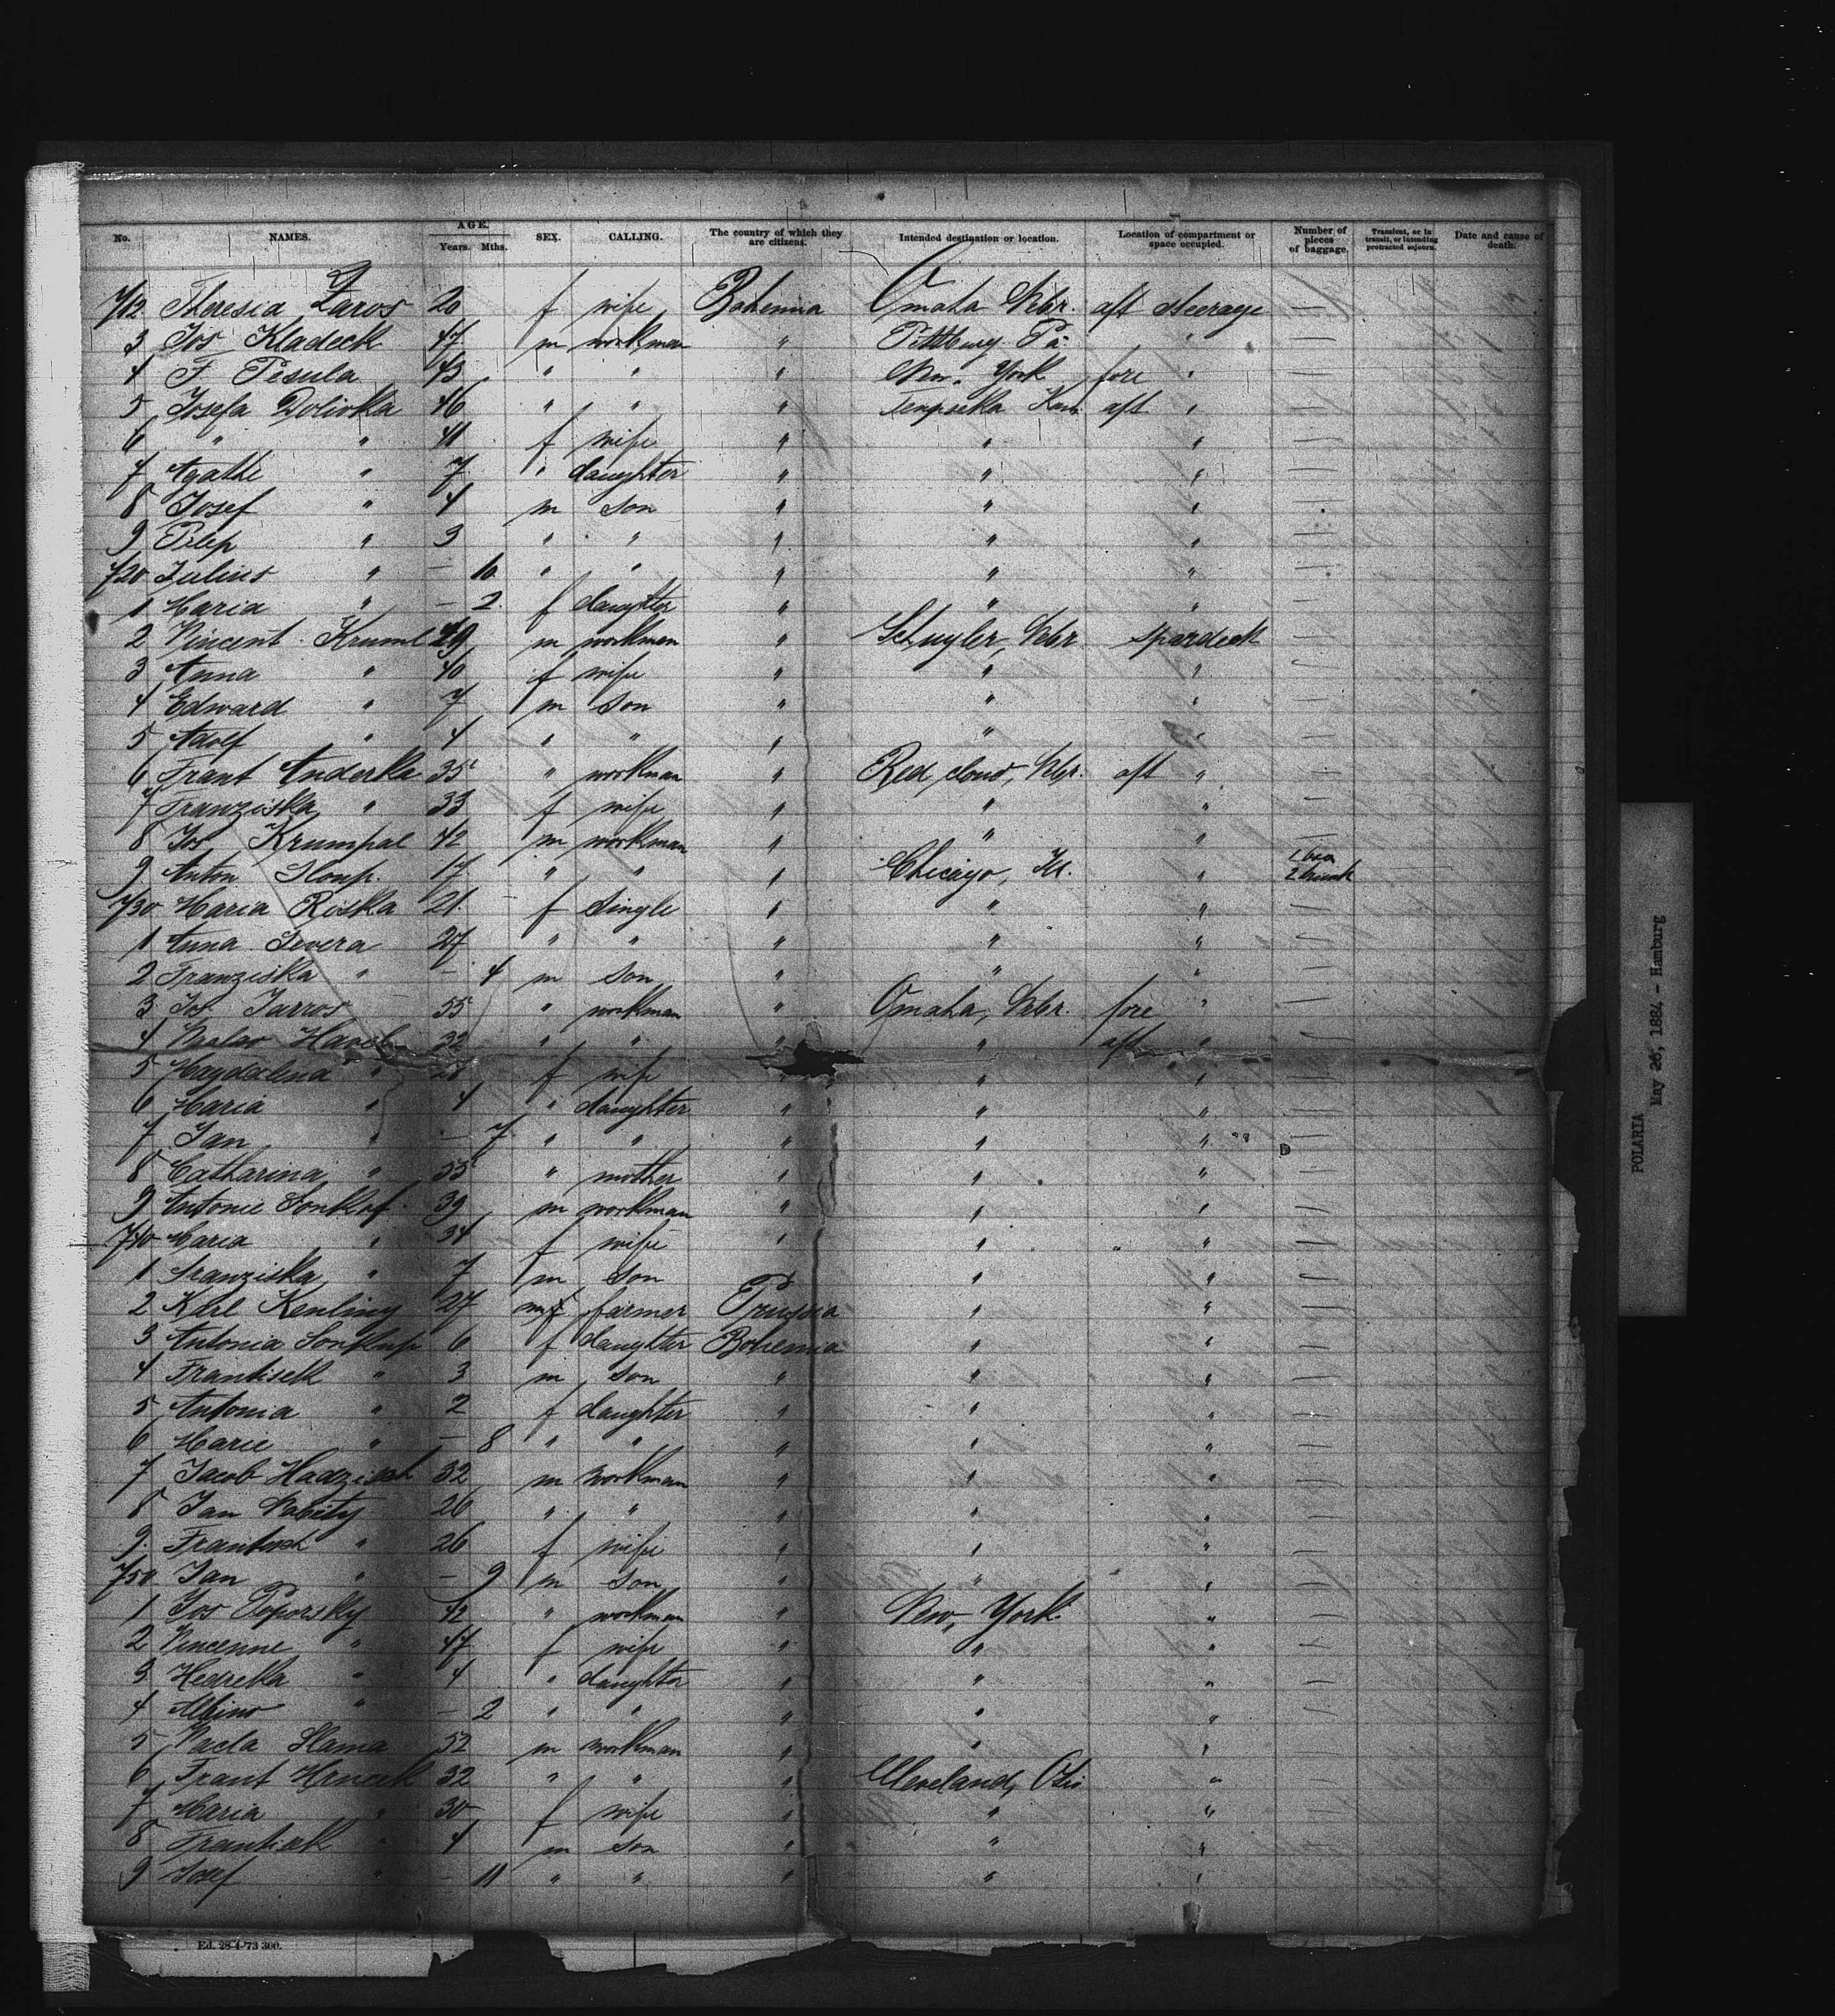 No. NAMES. AGE. Years. Mths. SEX. CALLING. The country of which they are citizens. Intended destination or location. Location of compartment or space occupied. Number of pieces of baggage. Transient, or in transit, or intending protracted sojourn. Date and cause of death.
712 Theresia Zaros 20 f wife Bohemia Omaha Nebr. aft steerage —
3 Jos Kladeck 47 m workman " Pittburg Pa. " —
4 F Pesula 43 " " " New York fore " —
5 Josefa Dolivka 46 " " " Kans aft " —
6 " " 41 f wife " " " —
7 Agathe " 7 " daughter " " " —
8 Josef " 4 m son " " " —
9 Pilep " 3 " " " " " —
720 Julius " — 10 " " " " " —
1 Maria " — 2 f daughter " " " —
2 Vincent Kruml 49 m workman " Schuyler, Nebr spardeck —
3 Anna " 40 f wife " " " —
4 Edward " 7 m son " " " —
5 Adolf " 4 " " " " " —
6 Frant Anderka 35 " workman " Red cloud, Nebr. aft " —
7 Franziska " 33 f wife " " " —
8 Jos Krumpal 42 m workman " " " —
9 Anton Houp. 17 " " " Chicago, Ill. " 1 box 2 trunk
730 Maria Roska 21 f single " " " —
1 Anna Severa 27 " " " " " —
2 Franziska " — 4 m son " " " —
3 Jos Jarros 55 " workman " Omaha, Nebr. fore " —
4 Havel 32 " " " " aft " —
5 Magdalena " f wife " " " —
6 Maria " 4 " daughter " " " —
7 Jan " — 7 " " " " " —
8 Catharina " 55 " mother " " " —
9 Antonie Sonklof 39 m workman " " " —
740 Maria " 34 f wife " " " —
1 Franziska " 7 m son " " " —
2 Karl Kenling 27 m farmer Prussia " " —
3 Antonia Sonklup 6 f daughter Bohemia " " —
4 Frantisek " 3 m son " " " —
5 Antonia " 2 f daughter " " " —
6 Marie " — 8 " " " " " —
7 Jacob 32 m workman " " " —
8 Jan 26 " " " " " —
9 " 26 f wife " " " —
750 Jan " — 9 m son " " " —
1 Jos Peporsky 42 " workman " New York " —
2 Vincenne " 47 f wife " " " —
3 " 4 " daughter " " " —
4 Albino " — 2 " " " " " —
5 Vacla Slama 52 m workman " " " —
6 Frant Hrncek 32 " " " Cleveland, Ohio " —
7 Maria " 30 f wife " " " —
8 Frantisek " 4 m son " " " —
9 Josef " — 11 " " " " " —
Ed. 28-4-73 300.
POLARIA
May 26, 1884 - Hamburg